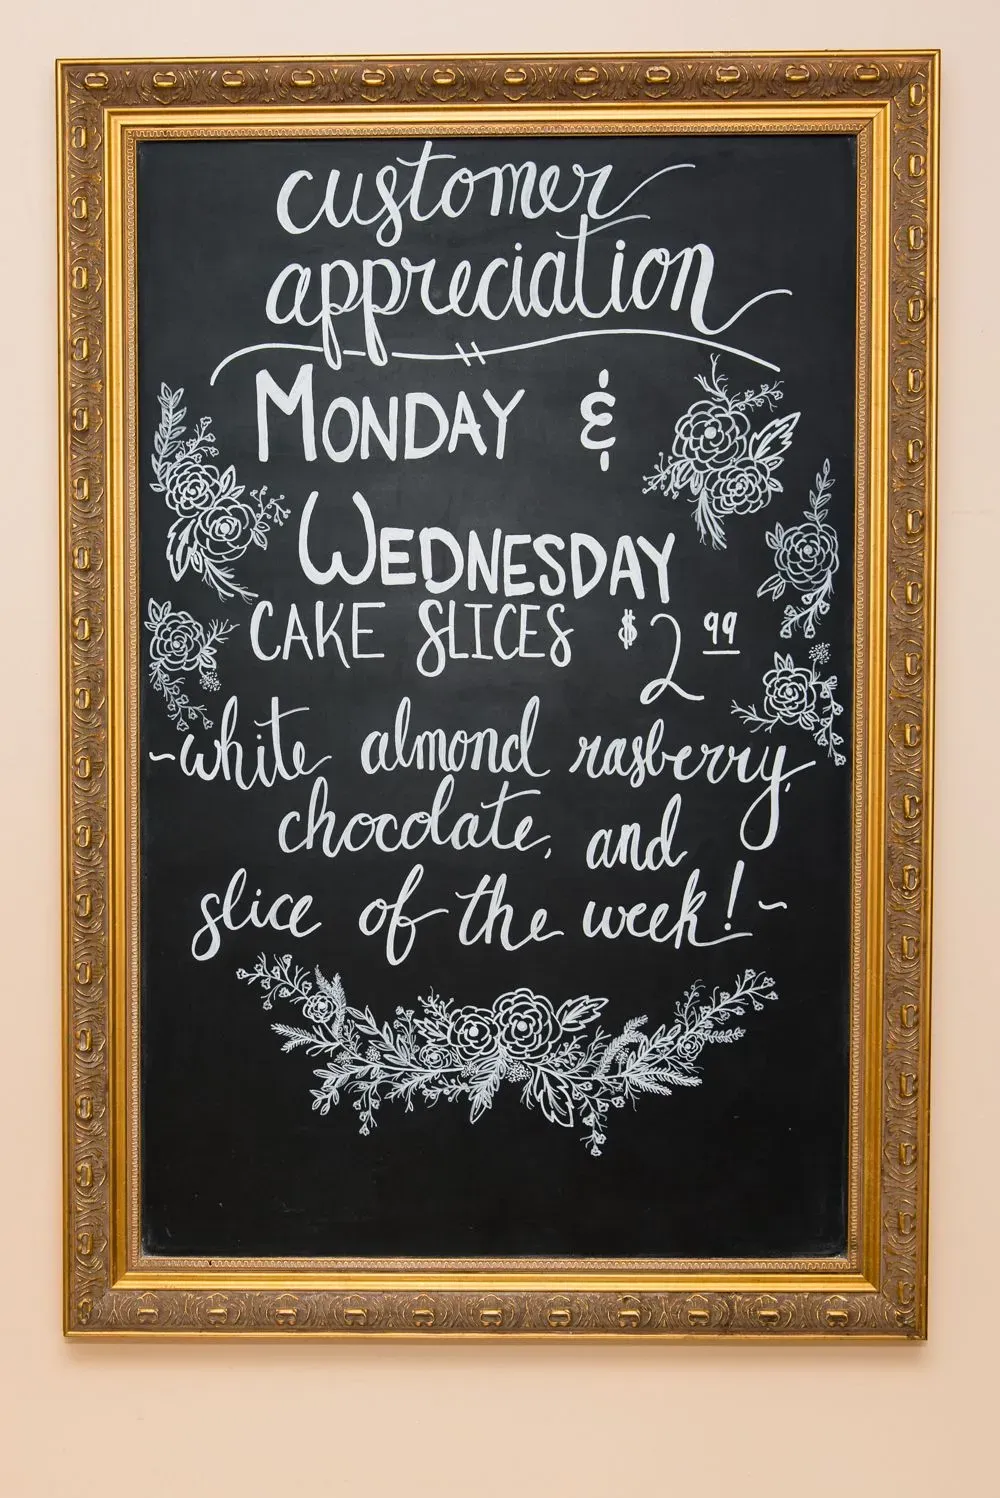 customer
appreciation
MONDAY &
WEDNESDAY
CAKE SLICES $2.99
~white almond rasberry,
chocolate, and
slice of the week!~